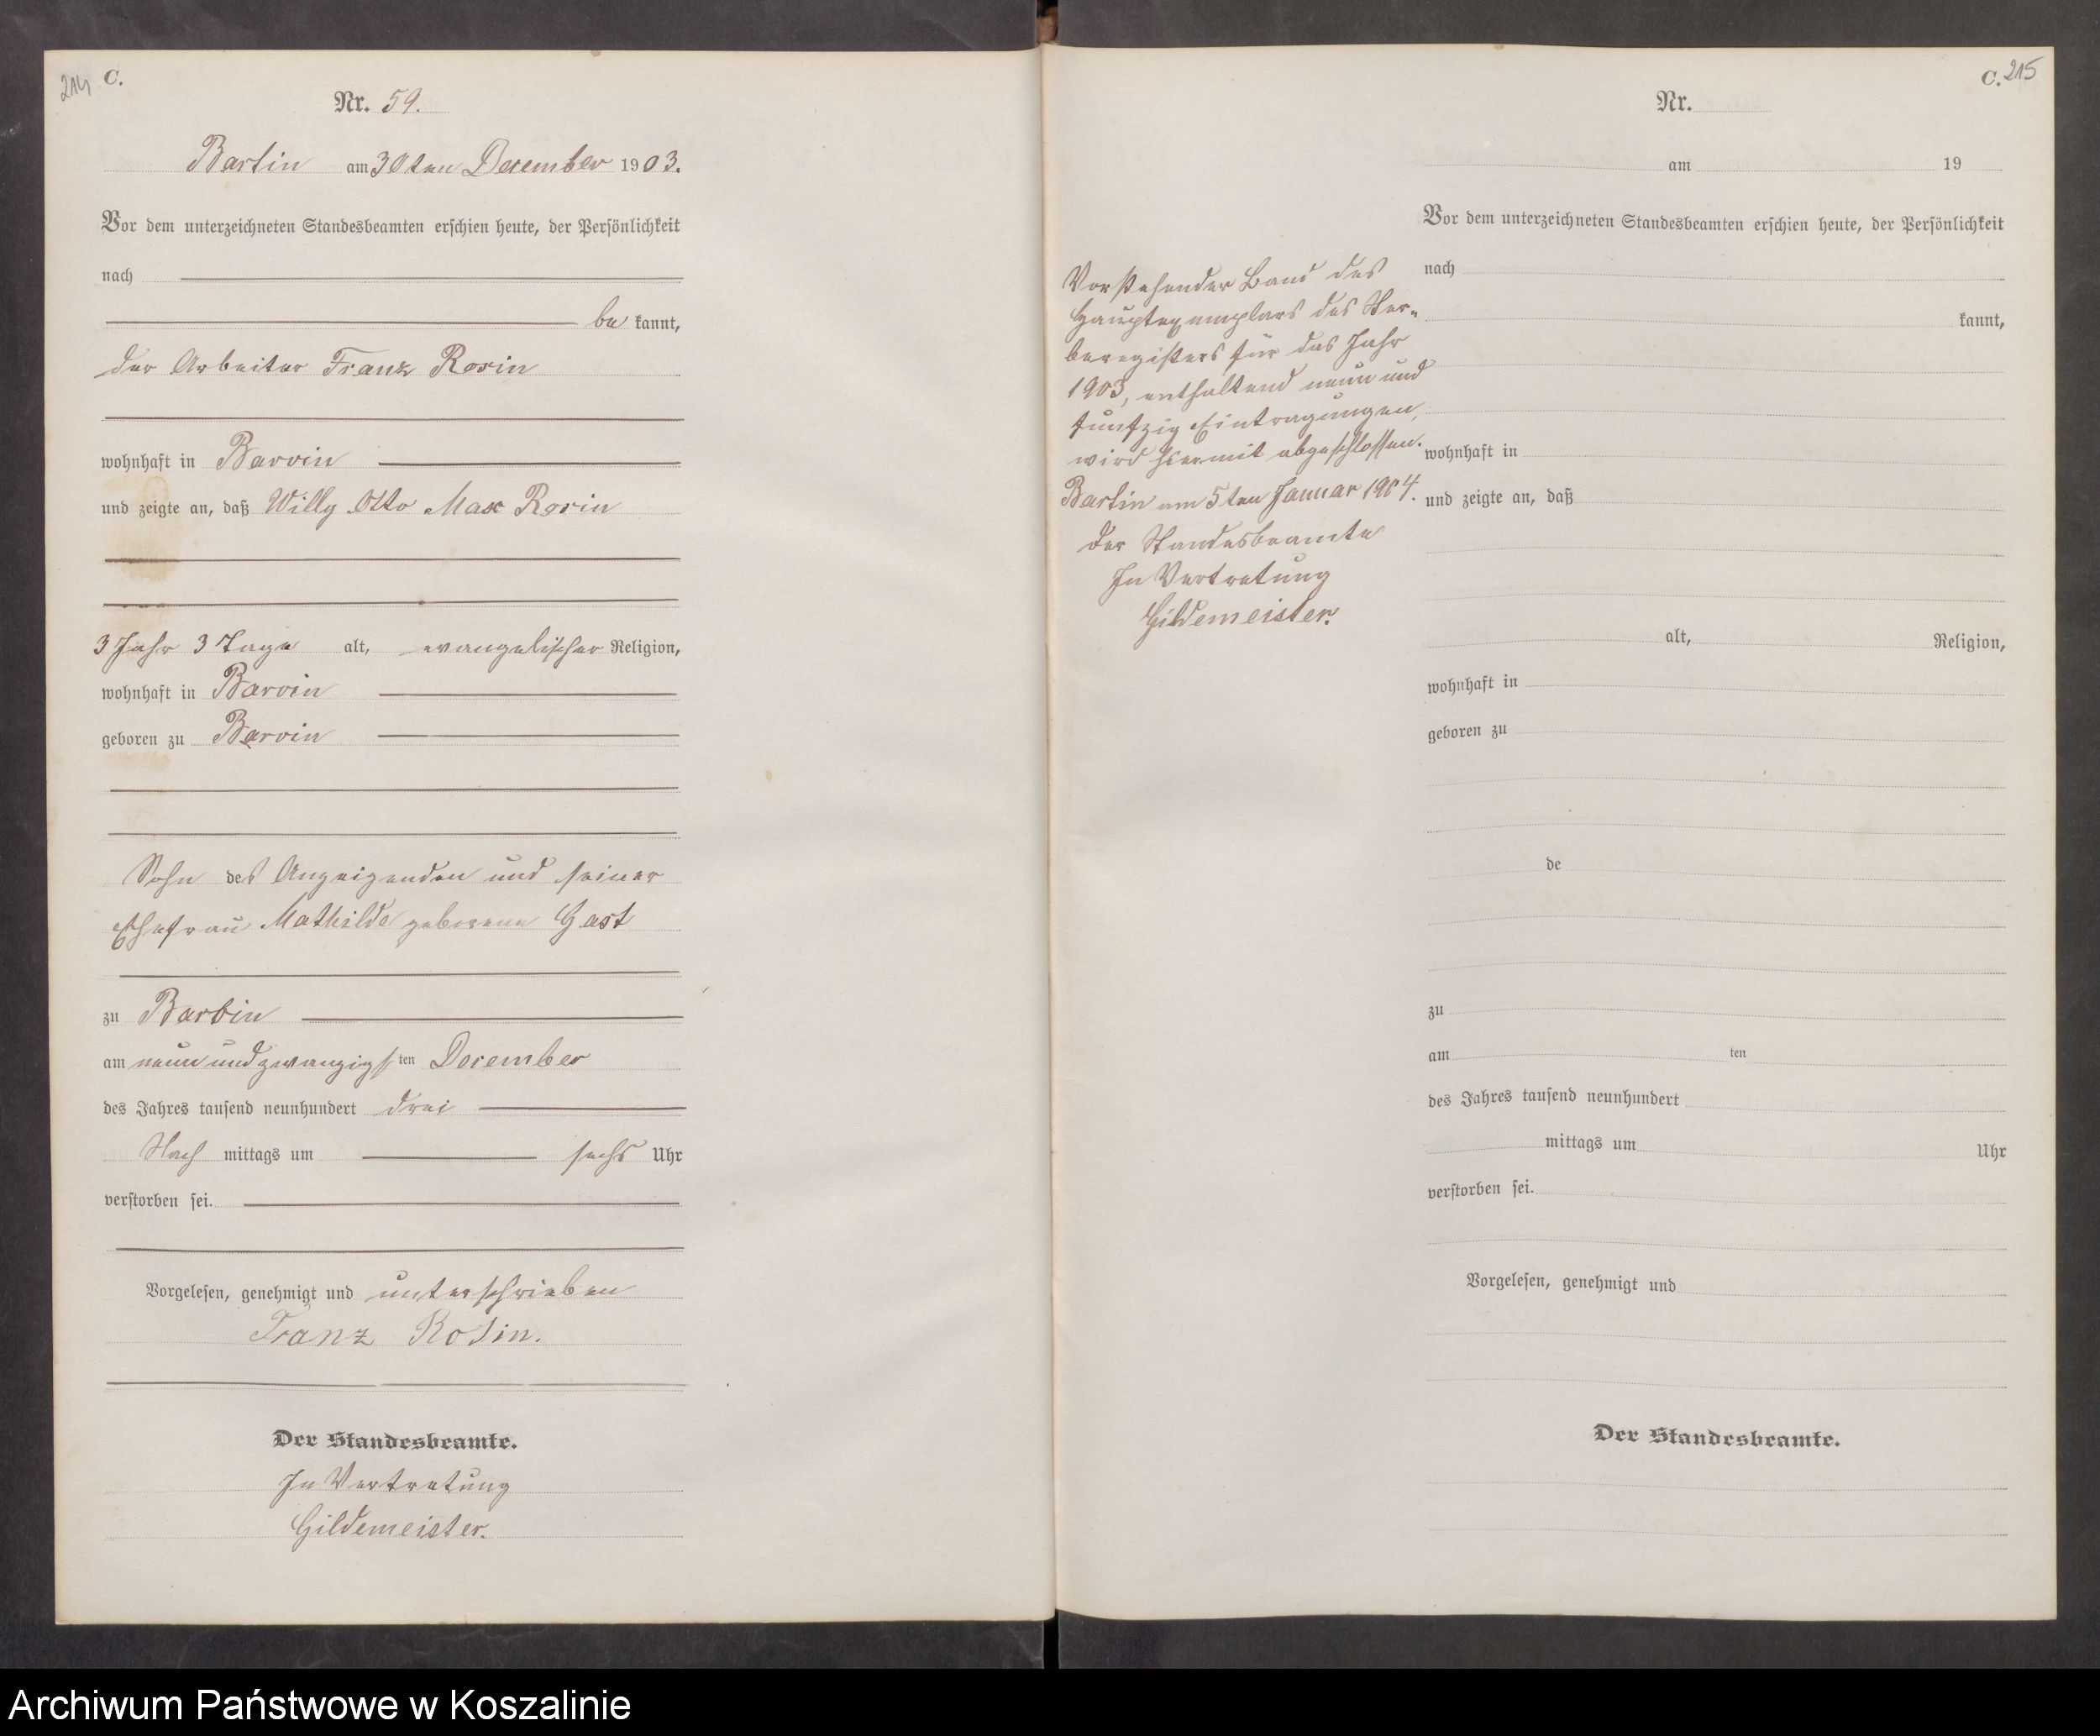 214 C.
Nr. 59.
Bartin am 30ten December 1903.
Vor dem unterzeichneten Standesbeamten erschien heute, der Persönlichkeit
nach
be kannt,
der Arbeiter Franz Rosin
wohnhaft in Barvin
und zeigte an, daß Willy Otto Max Rosin
3 Jahr 3 Tage alt, evangelischer Religion,
wohnhaft in Barvin
geboren zu Barvin
Sohn des Anzeigenden und seiner
Ehefrau Mathilde geborene Gast
zu
am neunundzwanzigsten December
des Jahres tausend neunhundert drei
Nach mittags um sechs Uhr
verstorben sei.
Vorgelesen, genehmigt und unterschrieben
Franz Rosin.
Der Standesbeamte.
In Vertretung
Gildemeister.
C. 215
Nr.
am 19
Vor dem unterzeichneten Standesbeamten erschien heute, der Persönlichkeit
nach
kannt,
wohnhaft in
und zeigte an, daß
alt, Religion,
wohnhaft in
geboren zu
de
zu
am ten
des Jahres tausend neunhundert
mittags um Uhr
verstorben sei.
Vorgelesen, genehmigt und
Der Standesbeamte.
Vorstehender Band des
Hauptexemplars des Ster-
beregisters für das Jahr
1903, enthaltend neun und
fünfzig Eintragungen,
wird hiermit abgeschlossen.
Bartin am 5ten Januar 1904.
Der Standesbeamte
In Vertretung
Gildemeister.
Archiwum Państwowe w Koszalinie